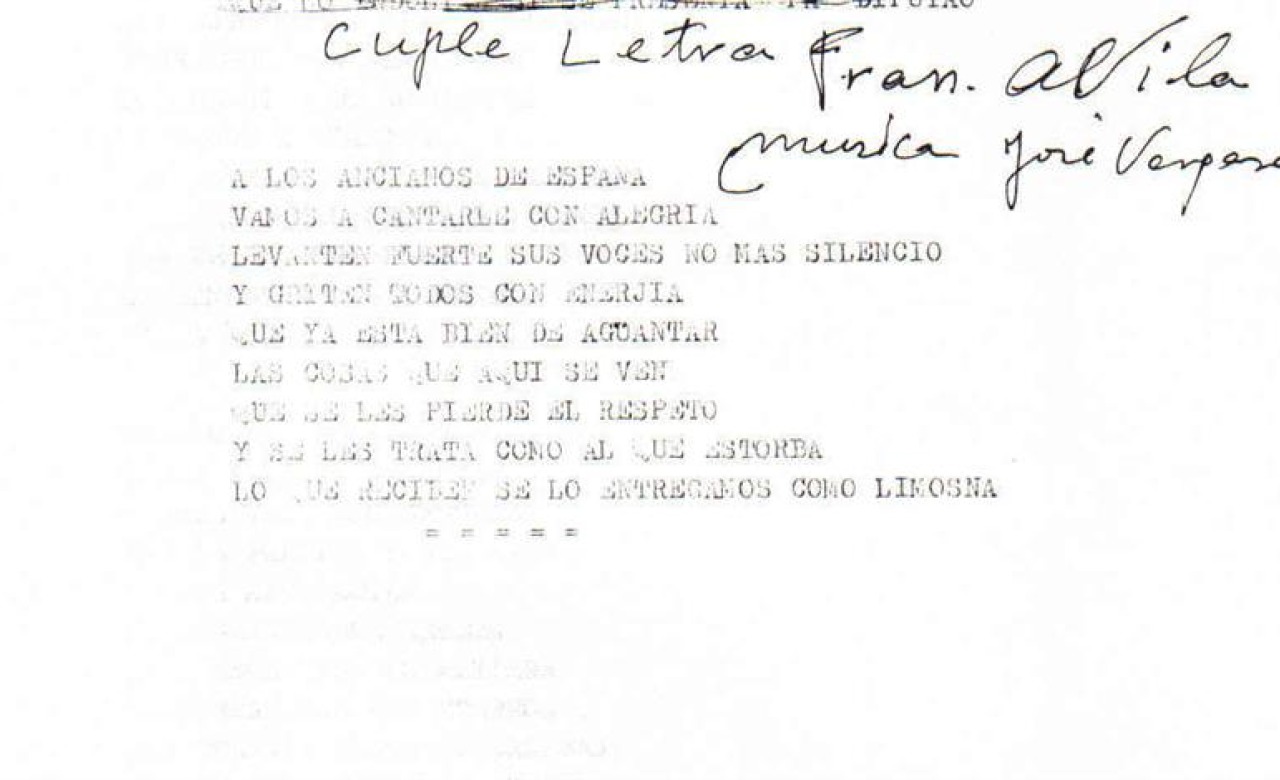 QUE LO PRESENTA PA DIPUTAO
Cuple Letra Fran. Avila
musica José
A LOS ANCIANOS DE ESPAÑA
VAMOS A CANTARLE CON ALEGRIA
LEVANTEN FUERTE SUS VOCES NO MAS SILENCIO
Y GRITEN TODOS CON ENERJIA
QUE YA ESTA BIEN DE AGUANTAR
LAS COSAS QUE AQUI SE VEN
QUE SE LES PIERDE EL RESPETO
Y SE LES TRATA COMO AL QUE ESTORBA
LO QUE RECIBEN SE LO ENTREGAMOS COMO LIMOSNA
= = = = =